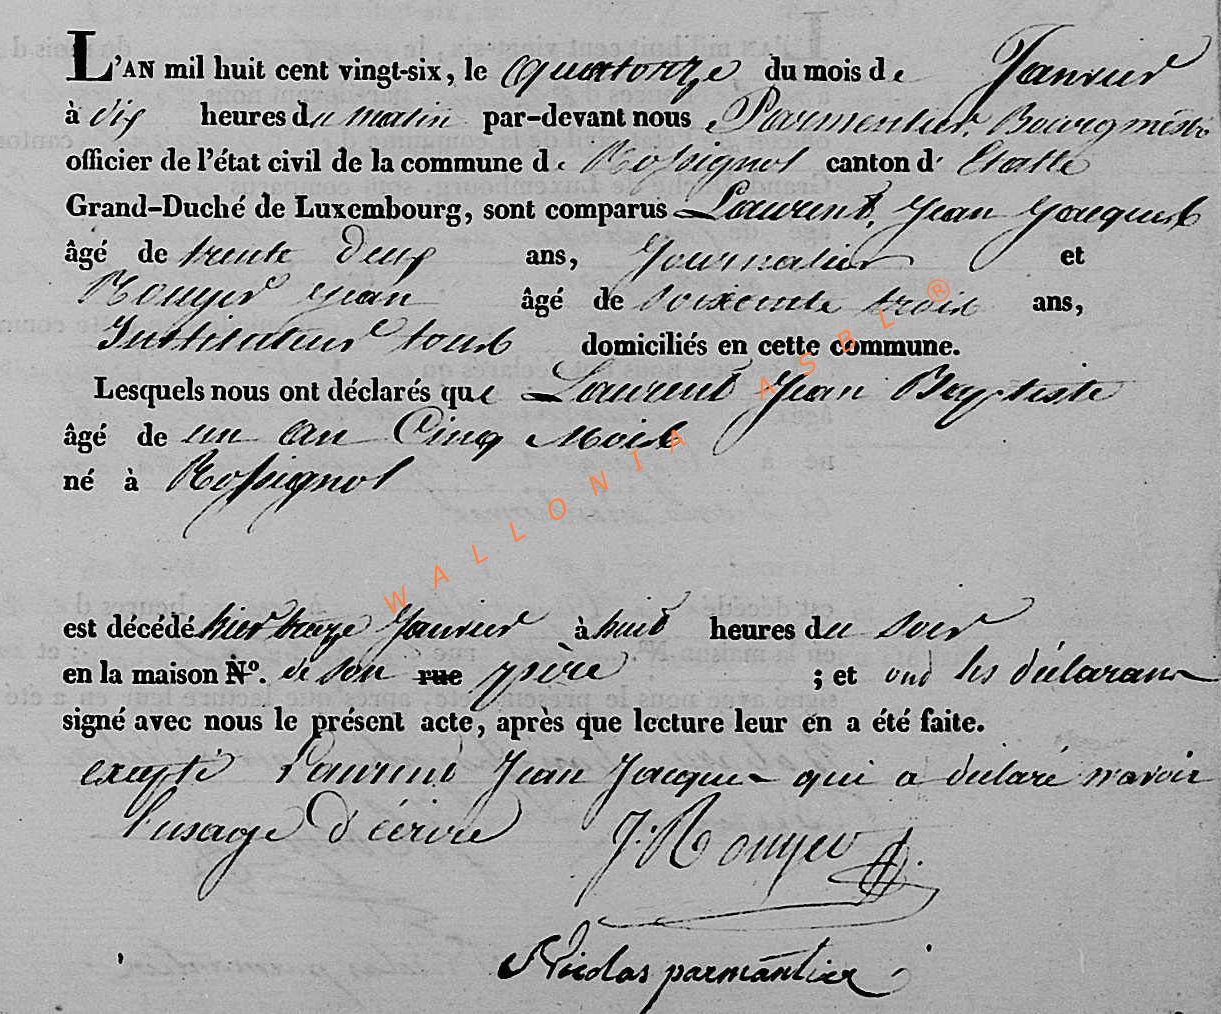 L'AN mil huit cent vingt-six, le quatorze du mois de Janvier
à dix heures du matin par-devant nous Parmentier, Bourgmestre
officier de l'état civil de la commune de Rossignol canton d' Etalle
Grand-Duché de Luxembourg, sont comparus Laurent, Jean Jacques
âgé de trente deux ans, Journalier et
Rouyer Jean âgé de soixente trois ans,
Instituteur tous domiciliés en cette commune.
Lesquels nous ont déclarés que Laurent Jean Baptiste
âgé de un an Cinq Mois
né à Rossignol
est décédé hier treize Janvier à huit heures du soir
en la maison N°. de son rue père ; et ont les déclarans
signé avec nous le présent acte, après que lecture leur en a été faite.
excepté Laurent Jean Jacques qui a déclaré n'avoir
l'usage d'écrire J. Rouyer
Nicolas parmantier
WALLONIA ASBL ®